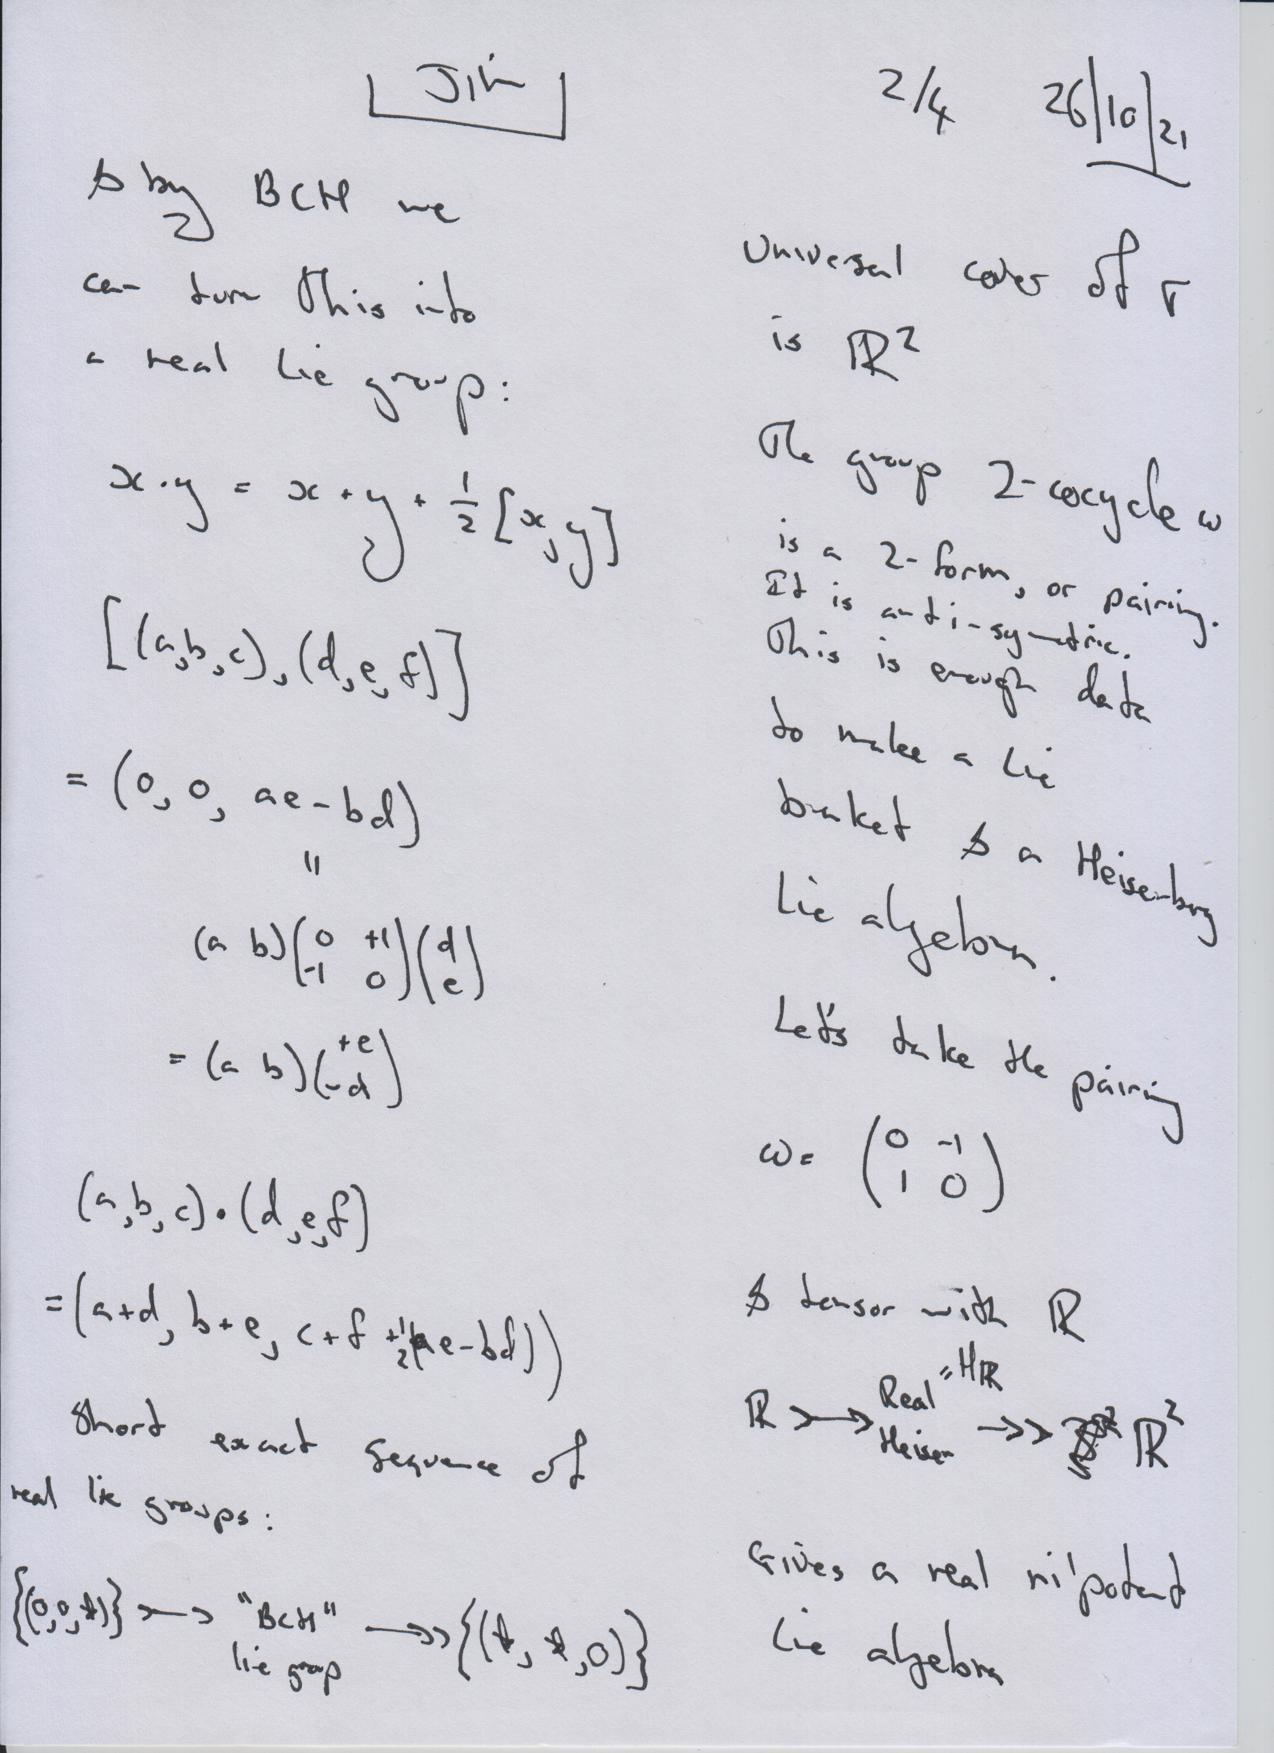 Jim
2/4 26/10/21
& by BCH we
can turn this into
a real Lie group:
x·y = x + y + 1/2 [x, y]
[(a, b, c), (d, e, f)]
= (0, 0, ae - bd)
=
(a b)(0 +1 / -1 0)(d / e)
= (a b)(+e / -d)
(a, b, c)·(d, e, f)
= (a+d, b+e, c+f +1/2(ae-bd))
Short exact sequence of
real lie groups:
{(0,0,*)} ↣ "BCH" lie group ↠ {(*, *, 0)}
Universal cover of T
is ℝ²
The group 2-cocycle ω
is a 2-form, or pairing.
It is anti-symmetric.
This is enough data
to make a Lie
bracket & a Heisenberg
Lie algebra.
Let's take the pairing
ω = (0 -1 / 1 0)
& tensor with ℝ
ℝ ↣ Real Heisen = Hℝ ↠ ℝ²
Gives a real nilpotent
Lie algebra